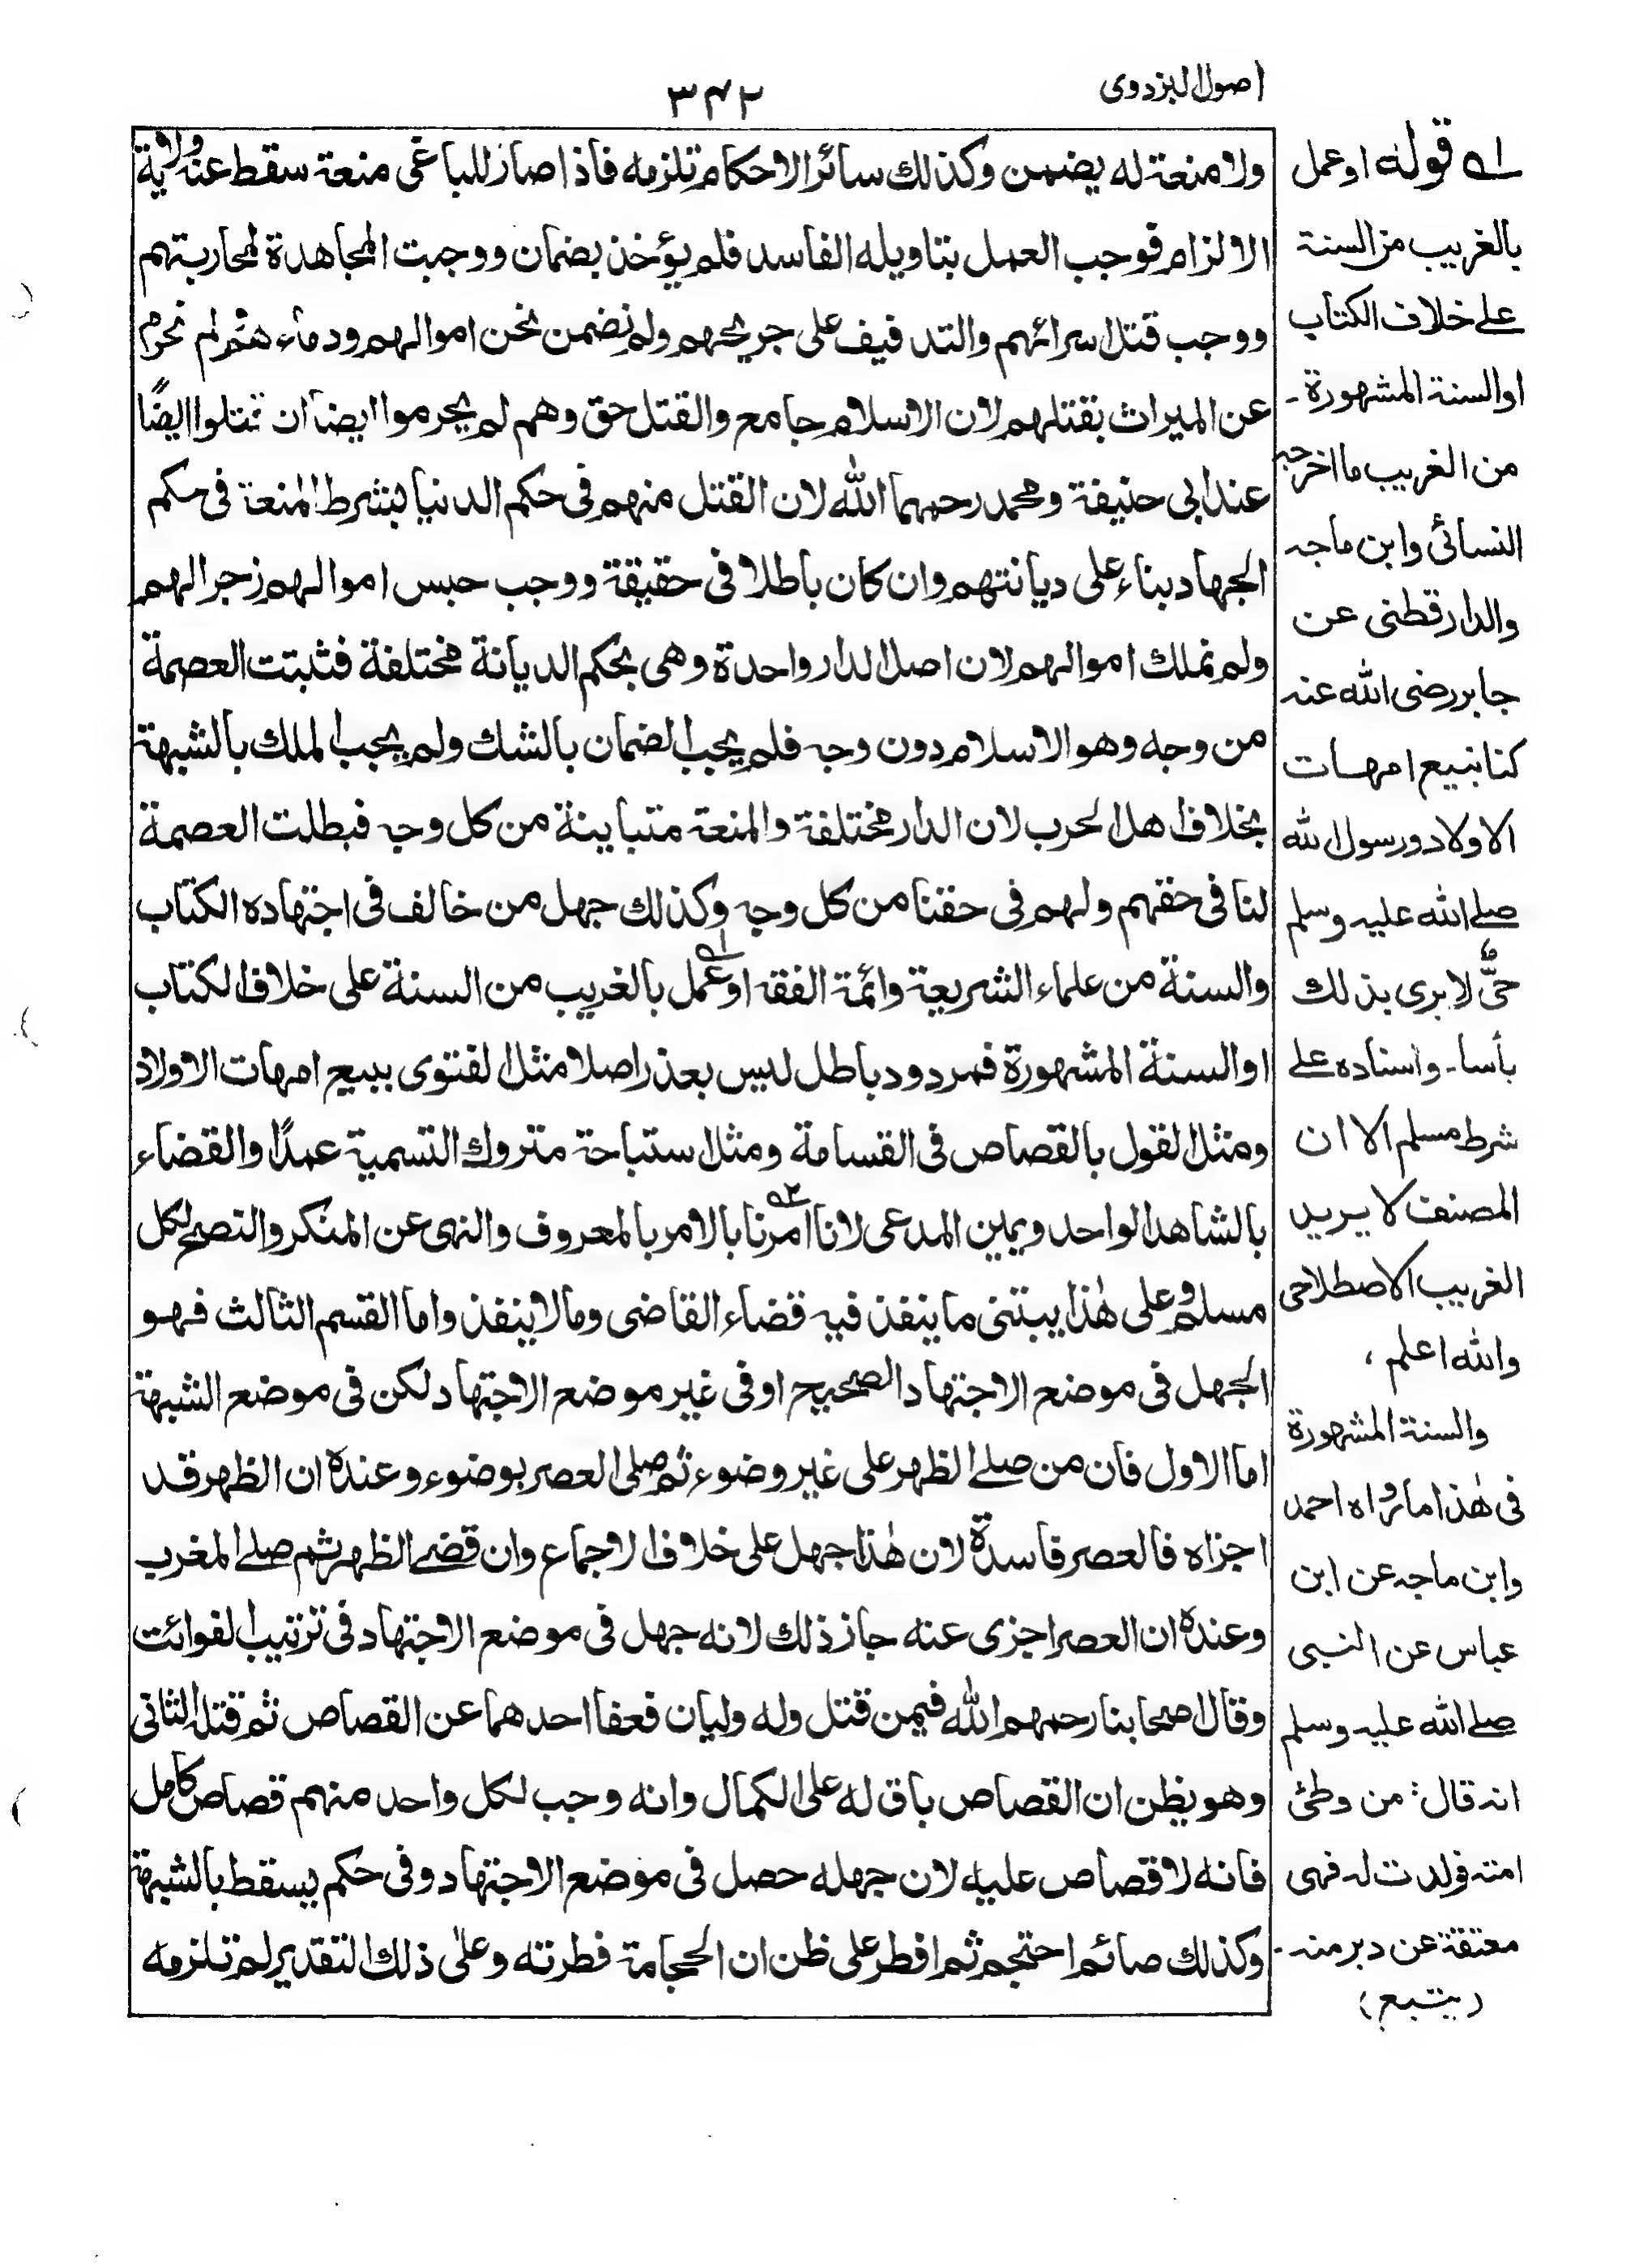 اصول البزدوی
۳۴۲
ولا منعة له يضمن وكذلك سائر الاحكام تلزمه فاذا صار للباغى منعة سقط عنه ولاية
الالزام فوجب العمل بتاويله الفاسد فلم يؤخذ بضمان ووجبت المجاهدة لمحاربتهم
ووجب قتل اسرائهم والتدفيف على جريحهم ولم نضمن نحن اموالهم ودماءهم ولم نحرم
عن الميراث بقتلهم لان الاسلام جامع والقتل حق وهم لم يحرموا ايضا ان قتلوا ايضًا
عند ابى حنيفة ومحمد رحمهما الله لان القتل منهم فى حكم الدنيا بشرط المنعة فى حكم
الجهاد بناء على ديانتهم وان كان باطلا فى حقيقة ووجب حبس اموالهم زجرا لهم
ولم نملك اموالهم لان اصل الدار واحدة وهى بحكم الديانة مختلفة فثبتت العصمة
من وجه وهو الاسلام دون وجه فلم يجب الضمان بالشك ولم يجب الملك بالشبهة
بخلاف اهل الحرب لان الدار مختلفة والمنعة متباينة من كل وجه فبطلت العصمة
لنا فى حقهم ولهم فى حقنا من كل وجه وكذلك جهل من خالف فى اجتهاده الكتاب
والسنة من علماء الشريعة وائمة الفقه او عمل ۱ بالغريب من السنة على خلاف الكتاب
او السنة المشهورة فمردود باطل ليس بعذر اصلا مثل الفتوى ببيع امهات الاولاد
ومثل القول بالقصاص فى القسامة ومثل استباحة متروك التسمية عمدًا والقضاء
بالشاهد الواحد ويمين المدعى لانا ۲ امرنا بالامر بالمعروف والنهى عن المنكر والنصح لكل
مسلم وعلى هٰذا يبتنى ما ينفذ فيه قضاء القاضى وما لا ينفذ واما القسم الثالث فهو
الجهل فى موضع الاجتهاد الصحيح او فى غير موضع الاجتهاد لكن فى موضع الشبهة
اما الاول فان من صلے الظهر على غير وضوء ثم صلى العصر بوضوء وعنده ان الظهر قد
اجزاه فالعصر فاسدة لان هٰذا جهل على خلاف الاجماع وان قضے الظهر ثم صلے المغرب
وعنده ان العصر اجزى عنه جاز ذلك لانه جهل فى موضع الاجتهاد فى ترتيب الفوائت
وقال اصحابنا رحمهم الله فيمن قتل وله وليان فعفا احدهما عن القصاص ثم قتل الثانى
وهو يظن ان القصاص باق له على الكمال وانه وجب لكل واحد منهم قصاص كامل
فانه لا قصاص عليه لان جهله حصل فى موضع الاجتهاد وفى حكم يسقط بالشبهة
وكذلك صائم احتجم ثم افطر على ظن ان الحجامة فطرته وعلى ذلك التقدير لم تلزمه
۱ قوله او عمل
بالغريب من السنة
علے خلاف الكتاب
او السنة المشهورة ـ
من الغريب ما اخرجه
النسائى وابن ماجه
والدارقطنى عن
جابر رضى الله عنه
كنا نبيع امهات
الاولاد ورسول الله
صلے الله عليه وسلم
حىٌّ لا يرى بذلك
بأسا ـ واسناده علے
شرط مسلم الا ان
المصنف لا يريد
الغريب الاصطلاحى
والله اعلم ،
والسنة المشهورة
فى هٰذا ما رواه احمد
وابن ماجه عن ابن
عباس عن النبى
صلے الله عليه وسلم
انه قال : من وطئ
امته فولدت له فهى
معتقة عن دبر منه ـ
(يتبع)